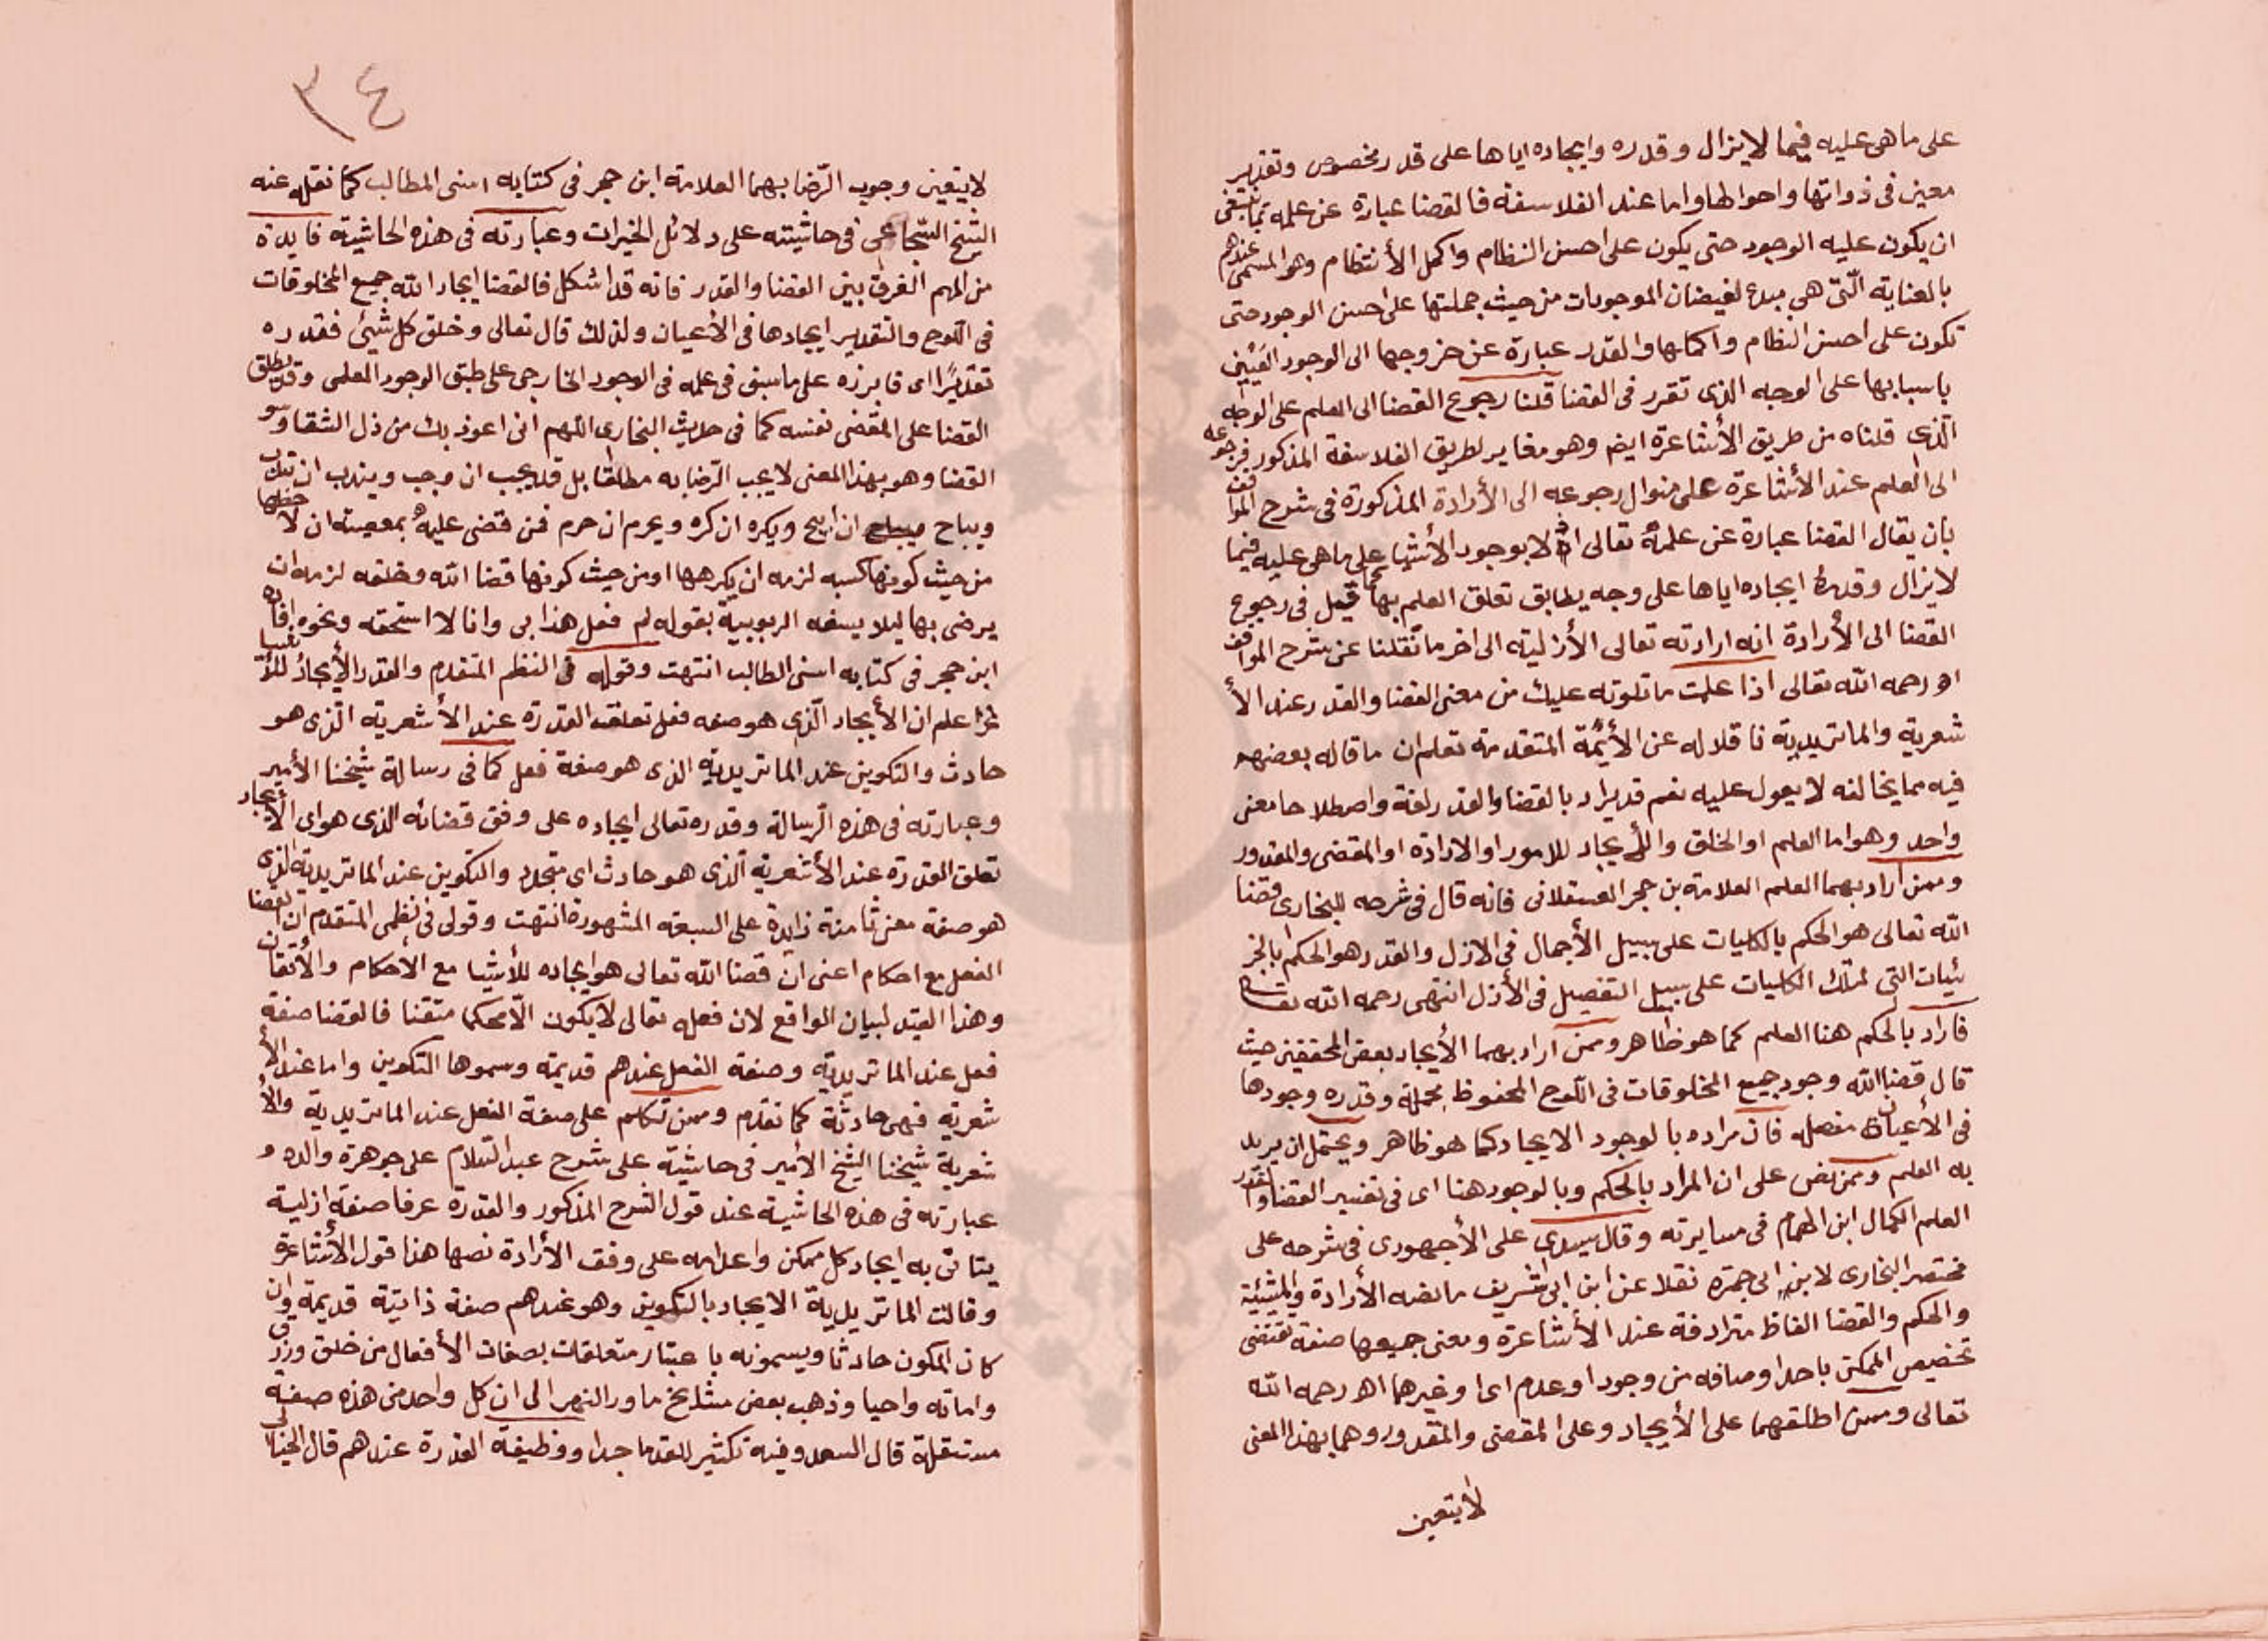 على ما هى عليه فيما لا يزال وقدره وايجاده اياها على قدر مخصوص وتقدير
معين فى ذواتها واحوالها واما عند الفلاسفة فالقضا عبارة عن علمه بما ينبغى
ان يكون عليه الوجود حتى يكون على احسن النظام واكمل الأنتظام وهو المسمى عندهم
بالعناية الّتى هى مبدء لفيضان الموجودات من حيث جملتها على احسن الوجود حتى
تكون على احسن النظام واكملها والقدر عبارة عن خروجها الى الوجود العينى
باسبابها على الوجه الذى تقرر فى القضا قلنا رجوع القضا الى العلم على الوجه
الّذى قلناه من طريق الأشاعرة ايضا وهو مغاير لطريق الفلاسفة المذكور فرجوعه
الى العلم عند الأشاعرة على منوال رجوعه الى الأرادة المذكورة فى شرح المواقف
بان يقال القضا عبارة عن علمه تعالى ازلا بوجود الأشيا على ما هى عليه فيما
لا يزال وقدره ايجاده اياها على وجه يطابق تعلق العلم بها كما قيل فى رجوع
القضا الى الأرادة انه ارادته تعالى الأزلية الى اخر ما نقلنا عن شرح المواقف
اه رحمه الله تعالى اذا علمت ما تلوته عليك من معنى القضا والقدر عند الأ
شعرية والماتريدية ناقلا له عن الأيمة المتقدمة تعلم ان ما قاله بعضهم
فيه مما يخالفه لا يعول عليه نعم قد يراد بالقضا والقدر لغة واصطلاحا معنى
واحد وهو اما العلم او الخلق والأيجاد للامور او الارادة او المقضى والمقدور
وممن اراد بهما العلم العلامة بن حجر العسقلانى فانه قال فى شرحه للبخارى قضا
الله تعالى هو الحكم بالكليات على سبيل الأجمال فى الازل والقدر هو الحكم بالجز
ئيات التى لتلك الكليات على سبيل التفصيل فى الأزل انتهى رحمه الله تعالى
فاراد بالحكم هنا العلم كما هو ظاهر وممن اراد بهما الأيجاد بعض المحققين حيث
قال قضا الله وجود جميع المخلوقات فى اللوح المحفوظ مجملة وقدره وجودها
فى الأعيان مفصلة فان مراده بالوجود الايجاد كما هو ظاهر ويحتمل ان يريد
به العلم وممن نص على ان المراد بالحكم وبالوجود هنا اى فى تفسير القضا والقدر
العلم الكمال ابن الهمام فى مسايرته وقال سيدى على الأجهورى فى شرحه على
مختصر البخارى لابن ابى جمرة نقلا عن ابن ابى شريف ما نصه الأرادة والمشيئة
والحكم والقضا الفاظ مترادفة عند الأشاعرة ومعنى جميعها صفة تقتضى
تخصيص الممكن باحد اوصافه من وجود او عدم او غيرهما اه رحمه الله
تعالى وممن اطلقهما على الأيجاد وعلى المقضى والمقدور وهما بهذا المعنى
لا يتعين
٣٤
لا يتعين وجوب الرّضا بهما العلامة ابن حجر فى كتابه اسنى المطالب كما نقله عنه
الشيخ السّجاعى فى حاشيته على دلائل الخيرات وعبارته فى هذه الحاشية فايدة
من المهم الفرق بين القضا والقدر فانه قد اشكل فالقضا ايجاد الله جميع المخلوقات
فى اللوح والتقدير ايجادها فى الأعيان ولذلك قال تعالى وخلق كل شيئ فقدره
تقديرًا اى فابرزه على ما سبق فى علمه فى الوجود الخارجى على طبق الوجود العلمى وقد يطلق
القضا على المقضى نفسه كما فى حديث البخارى اللهم انى اعوذ بك من ذل الشقا وسو
القضا وهو بهذا المعنى لا يجب الرّضا به مطلقا بل قد يجب ان وجب ويندب ان ندب
ويباح ان ابيح ويكره ان كره ويحرم ان حرم فمن قضى عليه بمعصية ان لاحظها
من حيث كونها كسبه لزمه ان يكرهها او من حيث كونها قضا الله وخلقه لزمه ان
يرضى بها ليلا يسفه الربوبية بقوله لم فعل هذا بى وانا لا استحقه ونحوه افاده
ابن حجر فى كتابه اسنى الطالب انتهت وقوله فى النظم المتقدم والقدر الأيجاد للأشيا
اعلم ان الأيجاد الّذى هو صفه فعل تعلق القدرة عند الأشعرية الّذى هو
حادث والتكوين عند الماتريدية الذى هو صفة فعل كما فى رسالة شيخنا الأمير
وعبارته فى هذه الرسالة وقدره تعالى ايجاده على وفق قضائه الذى هو اى الأيجاد
تعلق القدرة عند الأشعرية الّذى هو حادث اى متجدد والتكوين عند الماتريدية الذى
هو صفة معنى ثامنة زايدة على السبعة المشهورة انتهت وقولى فى نظمى المتقدم ان القضا
الفعل مع احكام اعنى انّ قضا الله تعالى هو ايجاده للأشيا مع الأحكام والأتقان
وهذا القيد لبيان الواقع لان فعله تعالى لا يكون الّا محكما متقنا فالقضا صفة
فعل عند الماتريدية وصفة الفعل عندهم قديمة وسموها التكوين واما عند الأ
شعرية فهى حادثة كما تقدم وممن تكلم على صفة الفعل عند الماتريدية والأ
شعرية شيخنا الشيخ الأمير فى حاشيته على شرح عبد السّلام على جوهرة والده و
عبارته فى هذه الحاشية عند قول الشرح المذكور والقدرة عرفا صفة ازلية
يتاتى به ايجاد كل ممكن واعدامه على وفق الأرادة نصها هذا قول الأشاعرة
وقالت الماتريدية الايجاد بالتكوين وهو عندهم صفة ذاتية قديمة وان
كان المكون حادثا ويسمونه باعتبار متعلقات بصفات الأفعال من خلق ورزق
واماته واحيا وذهب بعض مشايخ ما ورالنهر الى ان كل واحد من هذه صفة
مستقلة قال السعد وفيه تكثير للقدما جدا ووظيفة القدرة عندهم قال الخيالى